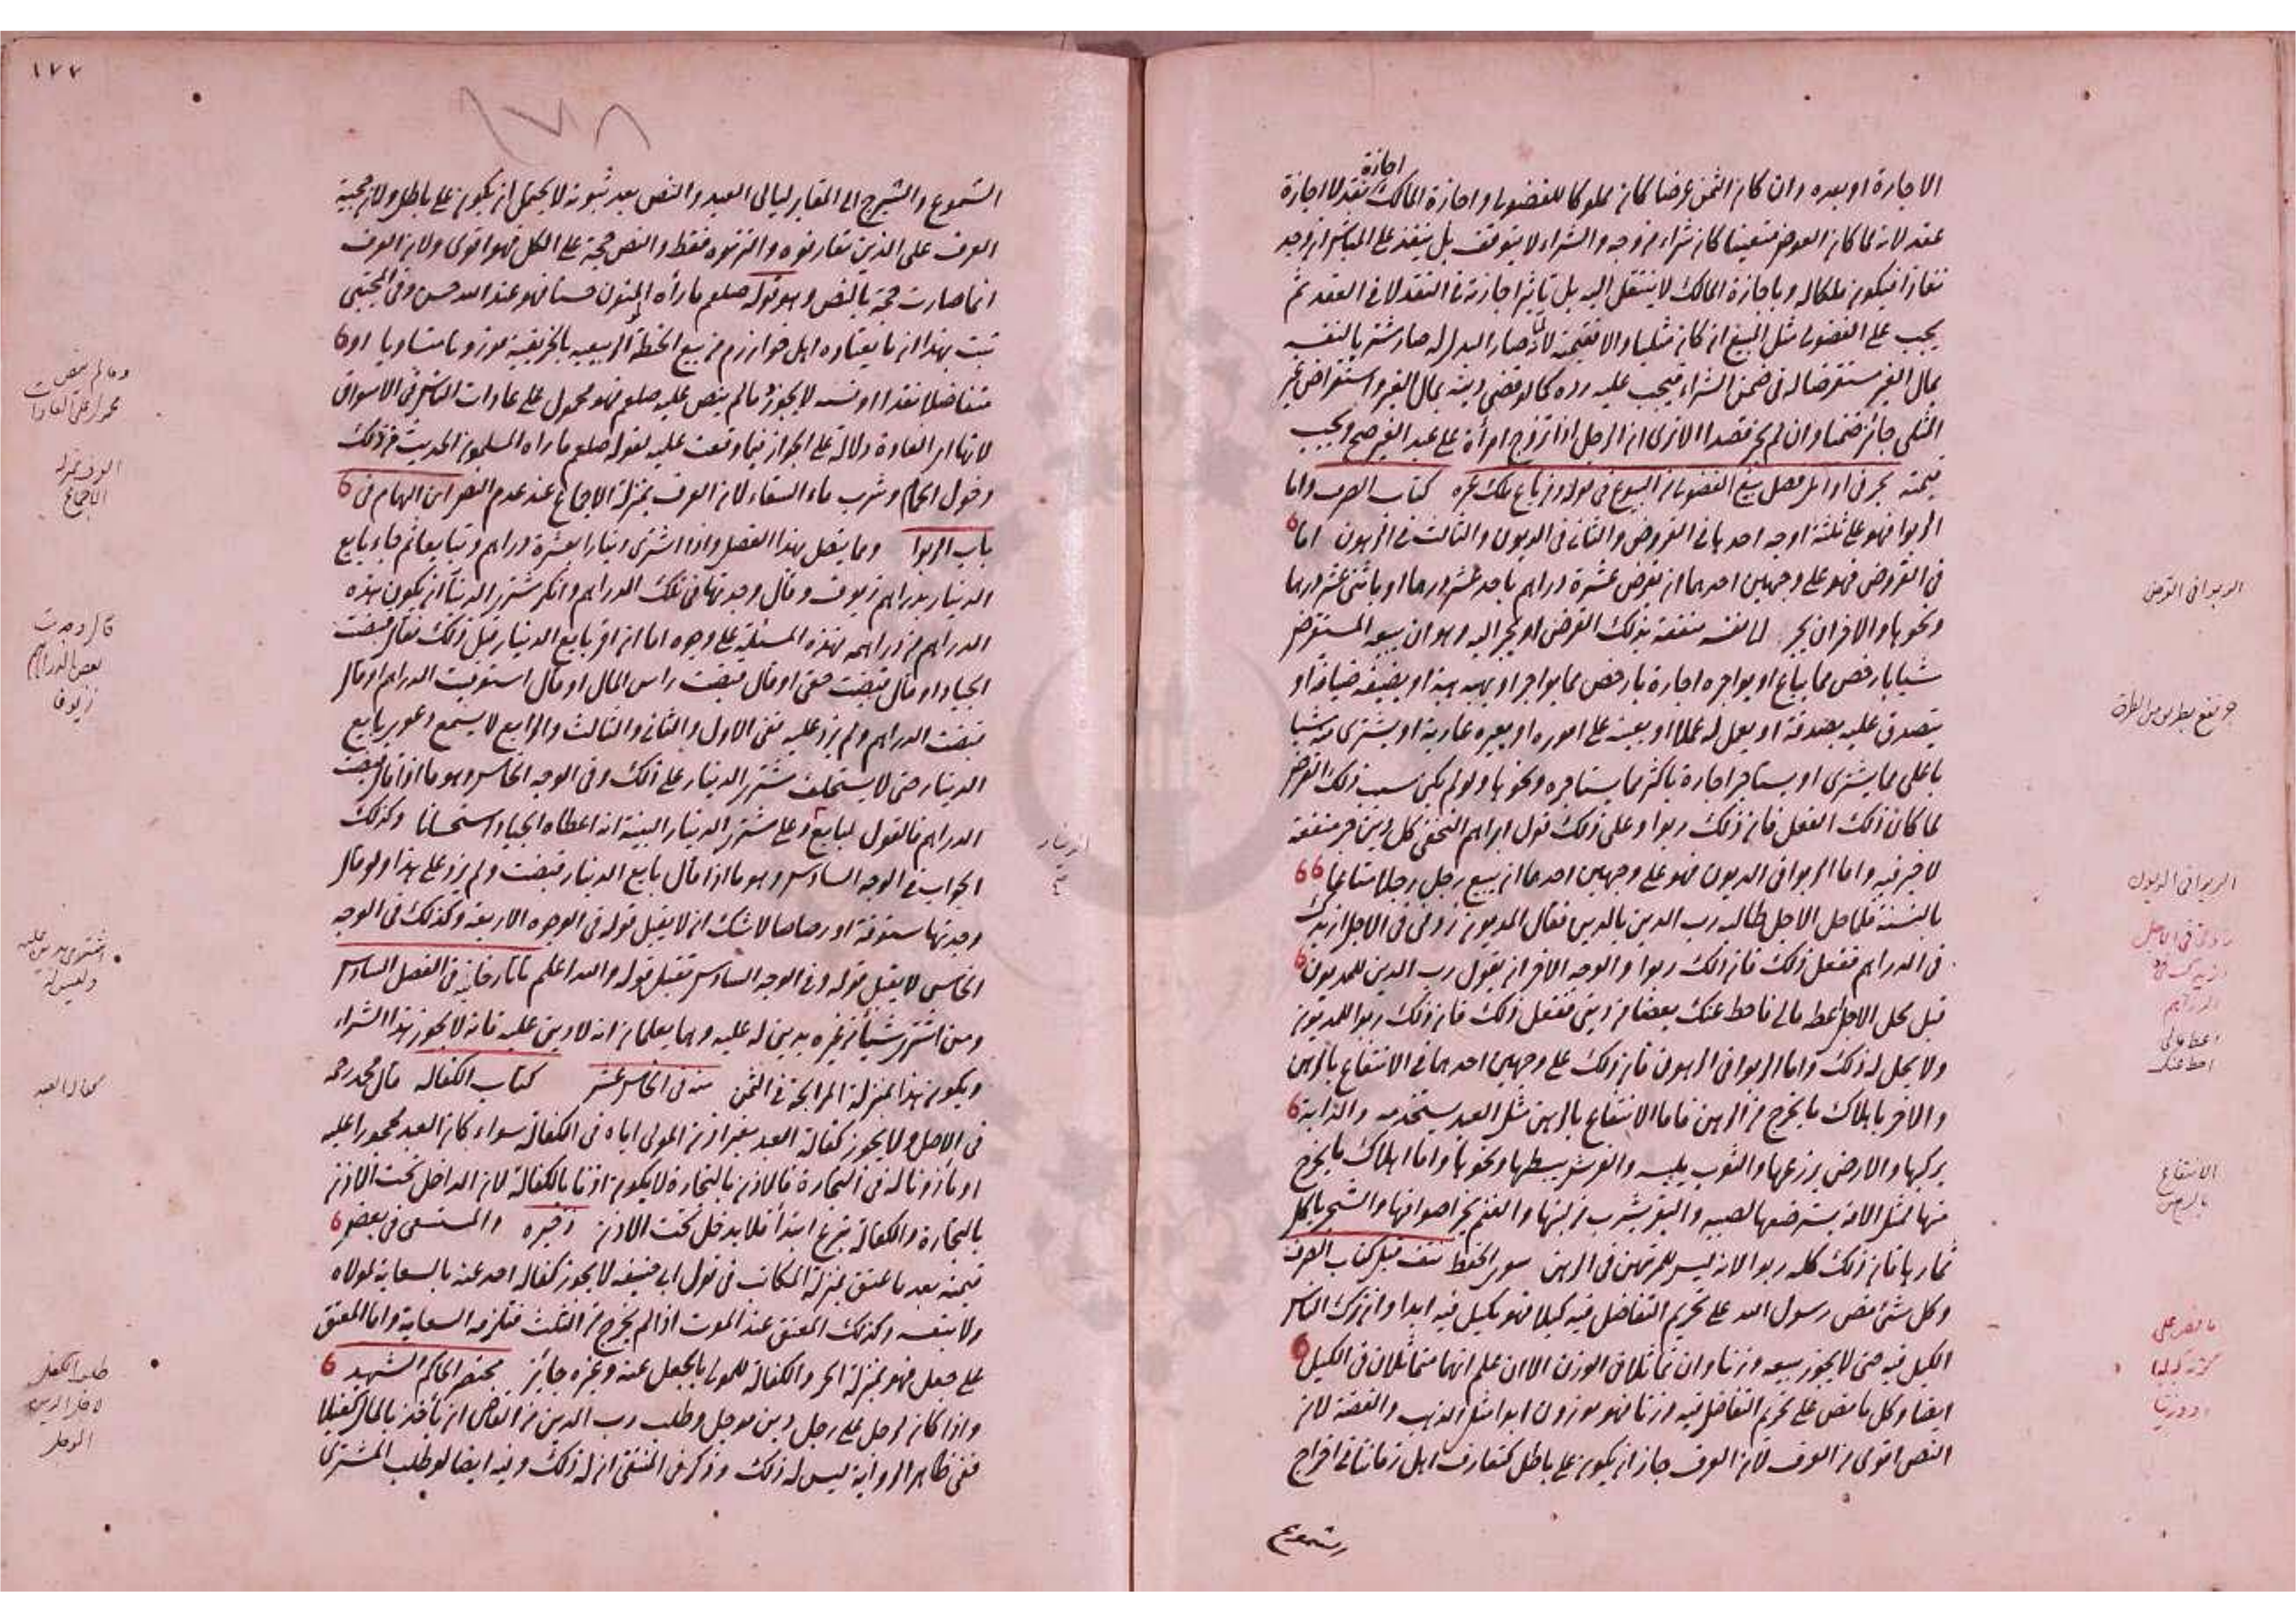 اجازة
الاجارة او بعده وان كان الثمن عرضا كان مملوكا للفضولى واجازة المالك نقد لا اجازة
عقد لانه لما كان العوض متعينا كان شراء من وجه والشراء لا يتوقف بل ينفذ على المباشر ان وجد
نفاذا فيكون ملكا له وباجازة المالك لا ينتقل اليه بل تاثير اجازته فى النقد لا فى العقد ثم
يجب على الفضولى مثل المبيع ان كان مثليا والا فقيمته لانه لما صار البدل له صار مشتريا لنفسه
بمال الغير مستقرضا له فى ضمن الشراء فيجب عليه رده كما لو قضى دينه بمال الغير واستقراض غير
المثلى جائز ضمنا وان لم يجز قصدا الا ترى ان الرجل اذا تزوج امرأة على عبد الغير صح ويجب
قيمته بحر فى اوائل فصل بيع الفضولى من البيوع فى قوله ومن باع ملك غيره كتاب الصرف واما
الربوا فهو على ثلثة اوجه احدها فى القروض والثانى فى الديون والثالث فى الرهون اما
فى القروض فهو على وجهين احدهما ان يقرض عشرة دراهم باحد عشر درهما او باثنى عشر درهما
ونحوها والاخر ان يجر لنفسه منفعة بذلك القرض او تجر اليه وهو ان يبيعه المستقرض
شيأ بارخص مما يباع او يواجره اجارة بارخص مما يواجر او يهبه هبة او يضيفه ضيافة او
يتصدق عليه بصدقة او يعمل له عملا او يعينه على اموره او يعيره عارية او يشترى منه شيأ
باغلى مما يشترى او يستاجر اجارة باكثر مما يستاجره ونحوها ولو لم يكن سبب ذلك القرض
لما كان ذلك الفعل فان ذلك ربوا وعلى ذلك قول ابراهيم النخعى كل دين جر منفعة
لا خير فيه واما الربوا فى الديون فهو على وجهين احدهما ان يبيع رجل رجلا متاعا
بالنسئة فلما حل الاجل طالبه رب الدين بالدين فقال المديون زدنى فى الاجل ازيدك
فى الدراهم ففعل ذلك فان ذلك ربوا والوجه الاخر ان يقول رب الدين للمديون
قبل محل الاجل اعط مالى فاحط عنك بعضا من دينى ففعل ذلك فان ذلك ربوا للمديون
ولا يحل له ذلك واما الربوا فى الرهون فان ذلك على وجهين احدهما فى الانتفاع بالرهن
والاخر باهلاك ما يخرج من الرهن فاما الانتفاع بالرهن مثل العبد يستخدمه والدابة
يركبها والارض يزرعها والثوب يلبسه والفرش يبسطها ونحوها واما اهلاك ما يخرج
منها فمثل الامة يسترضعها لصبيه والبقر يشرب من لبنها والغنم يجز اصوافها والشجر ياكل
ثمارها فان ذلك كله ربوا لانه ليس للمرتهن فى الرهن سوى الحفظ نتف قبل كتاب الصرف
وكل شئ نص رسول الله على تحريم التفاضل فيه كيلا فهو مكيل فيه ابدا وان ترك الناس
الكيل فيه حتى لا يجوز بيعه وزنا وان تماثلا فى الوزن الا ان علم انهما متماثلان فى الكيل
ايضا وكل ما نص على تحريم التفاضل فيه وزنا فهو موزون ابدا مثل الذهب والفضة لان
النص اقوى من العرف لان العرف جاز ان يكون على باطل كتعارف اهل زماننا فى اخراج
الشموع
الربوا فى القرض
الربوا فى الديون
زدنى فى الاجل
الدراهم
اعط مالى
احط عنك
الانتفاع
بالرهن
ما نص على
١٧٧
الشموع والشيرج الى المقابر ليالى العيد والنص بعد ثبوته لا يحتمل ان يكون على باطل ولان حجية
العرف على الذين تعارفوه والتزموه فقط والنص حجة على الكل فهو اقوى ولان العرف
انما صارت حجة بالنص وهو قوله صلعم ما رأه المؤمنون حسنا فهو عند الله حسن وفى المجتبى
ثبت بهذا ان ما يعتاده اهل خوارزم من بيع الحنطة الربيعية بالخريفية موزونا متساويا او
متفاضلا نقدا او نسئة لا يجوز وما لم ينص عليه صلعم فهو محمول على عادات الناس فى الاسواق
لانها اى العادة دلالة على الجواز فيما وقعت عليه لقوله صلعم ما راه المسلمون الحديث من ذلك
دخول الحمام وشرب ماء السقاء لان العرف بمنزلة الاجماع عند عدم النص ابن الهمام فى
باب الربوا ومما يتصل بهذا الفصل واذا اشترى دينارا بعشرة دراهم وتبايعا ثم جاء بايع
الدينار بدراهم زيوف وقال وجدتها فى تلك الدراهم وانكر مشترى الدينار ان يكون هذه
الدراهم من دراهمه فهذه المسئلة على وجوه اما ان اقر بايع الدينار قبل ذلك فقال قبضت
الجياد او قال قبضت حقى او قال قبضت راس المال او قال استوفيت الدراهم او قال
قبضت الدراهم ولم يزد عليه ففى الاول والثانى والثالث والرابع لا يسمع دعوى بايع
الدينار حتى لا يستحلف مشترى الدينار على ذلك وفى الوجه الخامس وهو ما اذا قال قبضت
الدراهم فالقول لبايع وعلى مشترى الدينار البينة انه اعطاه الجياد استحسانا وكذلك
الجواب فى الوجه السادس وهو ما اذا قال بايع الدينار قبضت ولم يزد على هذا ولو قال
وجدتها ستوقة او رصاصا لا شك ان لا يقبل قوله فى الوجوه الاربعة وكذلك فى الوجه
الخامس لا يقبل قوله وفى الوجه السادس تقبل قوله والله اعلم تاتارخانيه فى الفصل السادس
ومن اشترى شيأ من غيره بدين له عليه وهما يعلمان انه لا دين عليه فانه لا يجوز هذا الشراء
ويكون هذا بمنزلة المرابحة فى الثمن منه فى الخامس عشر كتاب الكفالة قال محمد رحمه
فى الاصل ولا يجوز كفالة العبد بغير اذن المولى اياه فى الكفالة سواء كان العبد محجورا عليه
او مأذونا له فى التجارة فالاذن بالتجارة لا يكون اذنا بالكفالة لان الداخل تحت الاذن
بالتجارة والكفالة تبرع ابتدأ فلا يدخل تحت الاذن ذخيره والمستسعى فى بعض
قيمته بعد ما عتق بمنزلة المكاتب فى قول ابى حنيفه لا يجوز كفالة احد عنه بالسعاية لمولاه
ولا بنفسه وكذلك المعتق عند الموت اذا لم يخرج من الثلث فتلزمه السعاية واما المعتق
على جعل فهو بمنزلة الحر والكفالة للمولى بالجعل عنه وغيره جائز مختصر الحاكم الشهيد
واذا كان لرجل على رجل دين موجل وطلب رب الدين من القاضى ان يأخذ بالمال كفيلا
ففى ظاهر الرواية ليس له ذلك وذكر فى المنتقى ان له ذلك وفيه ايضا لو طلب المشترى
وما لم ينص
محمول على العادات
العرف بمنزلة
الاجماع
قال وجدت
بعض الدراهم
زيوفا
الدينار
كفالة العبد
طلب الكفيل
لاجل الدين
الموجل